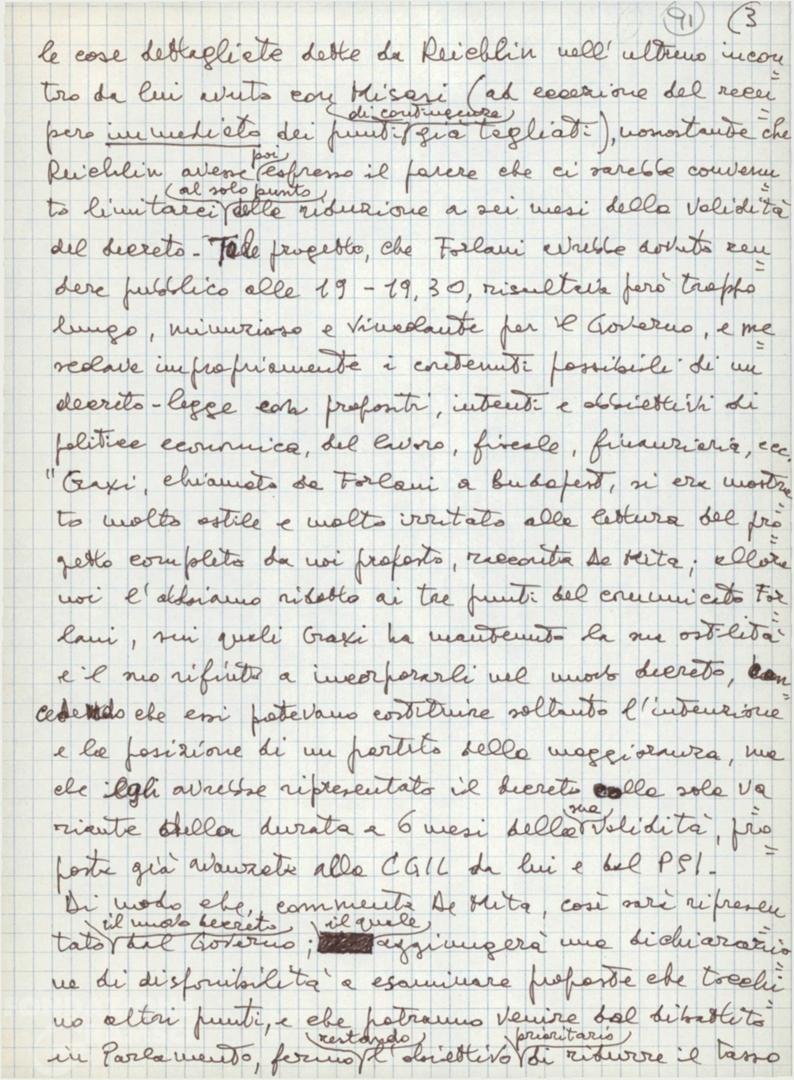 91 (3
le cose dettagliate dette da Reichlin nell'ultimo incon
tro da lui avuto con Misasi (ad eccezione del recu
di contingenza
pero immediato dei punti già tagliati), nonostante che
poi
Reichlin avesse espresso il parere che ci sarebbe convenu
al solo punto
to limitarci della riduzione a sei mesi della validità
del decreto. Tale progetto, che Forlani avrebbe dovuto ren
dere pubblico alle 19 - 19,30, risultava però troppo
lungo, minuzioso e vincolante per il Governo, e me
scolava impropriamente i contenuti possibili di un
decreto-legge con propositi, intenti e obbiettivi di
politica economica, del lavoro, fiscale, finanziaria, ecc.
"Craxi, chiamato da Forlani a Budapest, si era mostra
to molto ostile e molto irritato alla lettura del pro
getto completo da noi proposto, racconta De Mita; allora
noi l'abbiamo ridotto ai tre punti del comunicato For
lani, sui quali Craxi ha mantenuto la sua ostilità
e il suo rifiuto a incorporarli nel nuovo decreto, con
cedendo che essi potevano costituire soltanto l'intenzione
e la posizione di un partito della maggioranza, ma
che egli avrebbe ripresentato il decreto colla sola va
sua
riante della durata a 6 mesi della validità, pro
posta già avanzata alla CGIL da lui e dal PSI.
Di modo che, commenta De Mita, così sarà ripresen
il nuovo decreto il quale
tato dal Governo; aggiungerà una dichiarazio
ne di disponibilità a esaminare proposte che tocchi
no altri punti, e che potranno venire dal dibattito
restando prioritario
in Parlamento, fermo l'obiettivo di ridurre il tasso